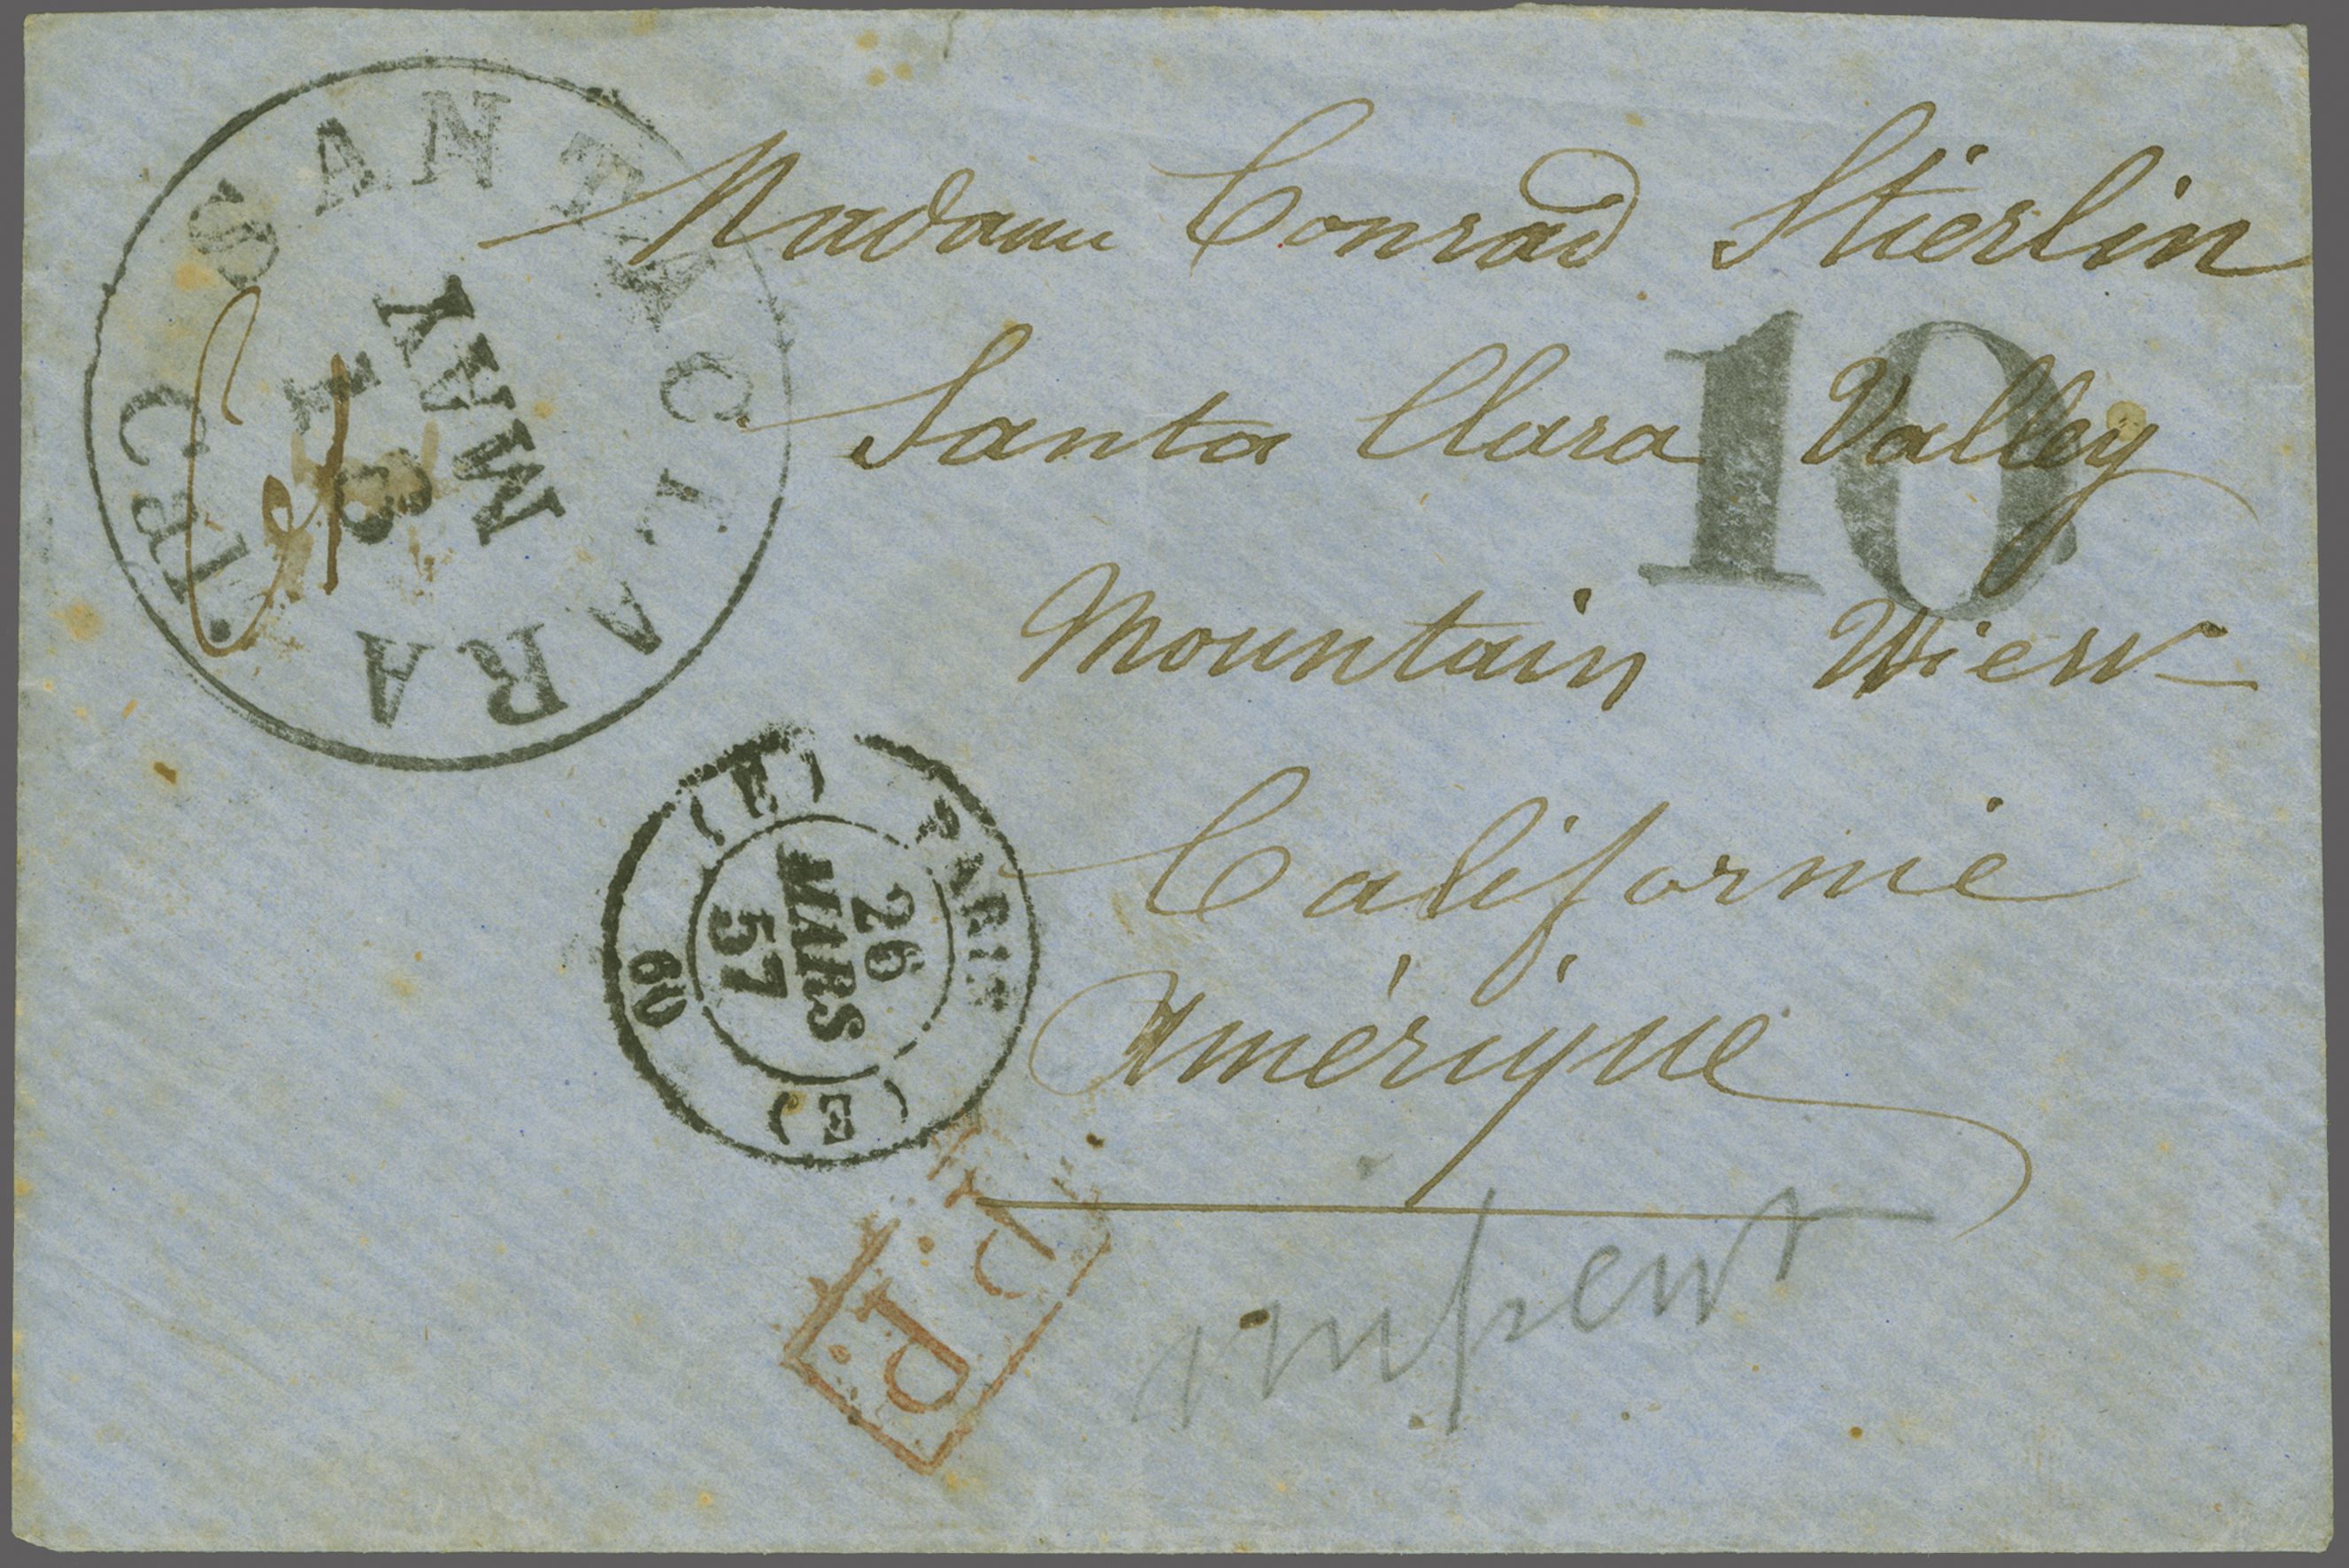 SANTA CLARA Cal.
MAY
18
Madame Conrad Stierlin
Santa Clara Valley
10
Mountain Wiew
Californie
Amérique
PARIS (E) 60 (E)
26
MARS
57
P.P.